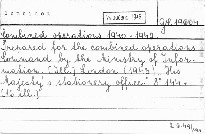 Combined operations 1940-1942.
Prepared for the combined operations
Command by the Ministry of Infor-
mation. (Ill.) London (1943), His
Majesty's stationery office. 8° 144 l.
(16 ill.)